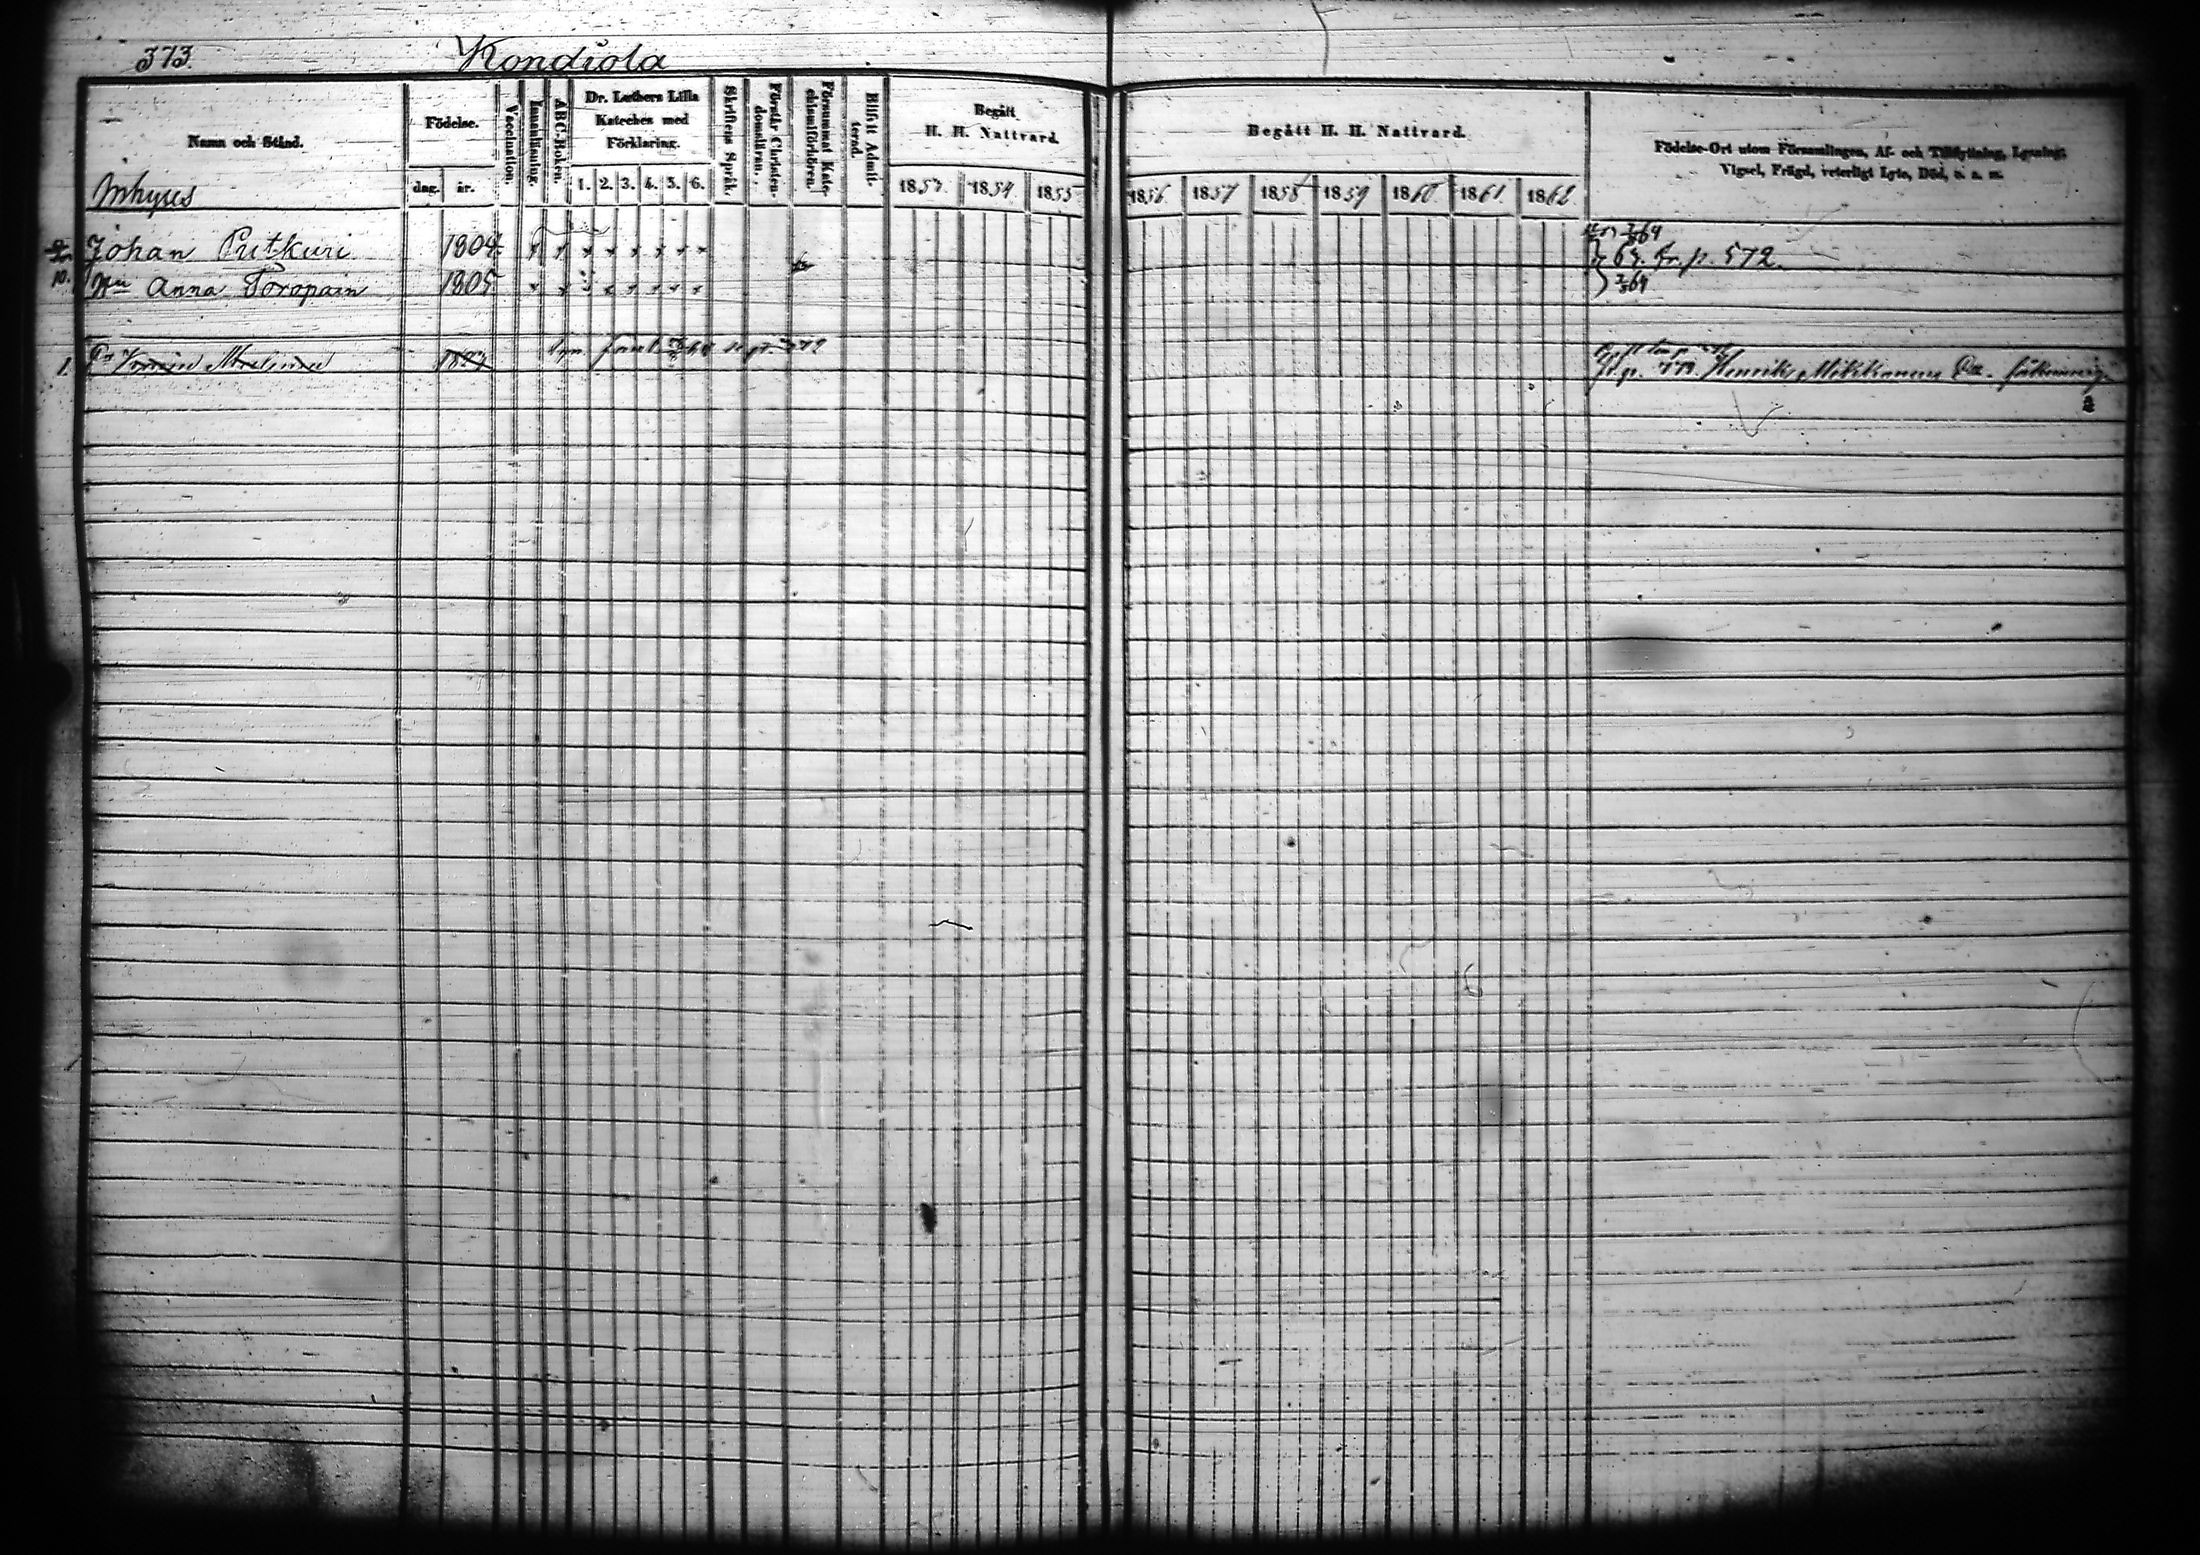 373. Kondiola
Namn och Stånd.
Födelse.
dag. år.
Vaccination.
Innanläsning.
A B C-Boken.
Dr. Luthers Lilla
Kateches med
Förklaring.
1. 2. 3. 4. 5. 6.
Skriftens Språk.
Förstår Christen-
domsläran.
Försummat Kate-
chismiförhören.
Blifvit Admit-
terad.
Begått
H. H. Nattvard.
1853 1854 1855
Begått H. H. Nattvard.
1856 1857 1858 1859 1860 1861 1862
Födelse-Ort utom Församlingen, Af- och Tillflyttning, Lysning,
Vigsel, Frägd, veterligt Lyte, Död, m. m.
Inhyses
Johan Putkuri 1804
65. Fr. p. 572.
Hu Anna Toropain 1805
10.
1.
Henrik Mikkonen